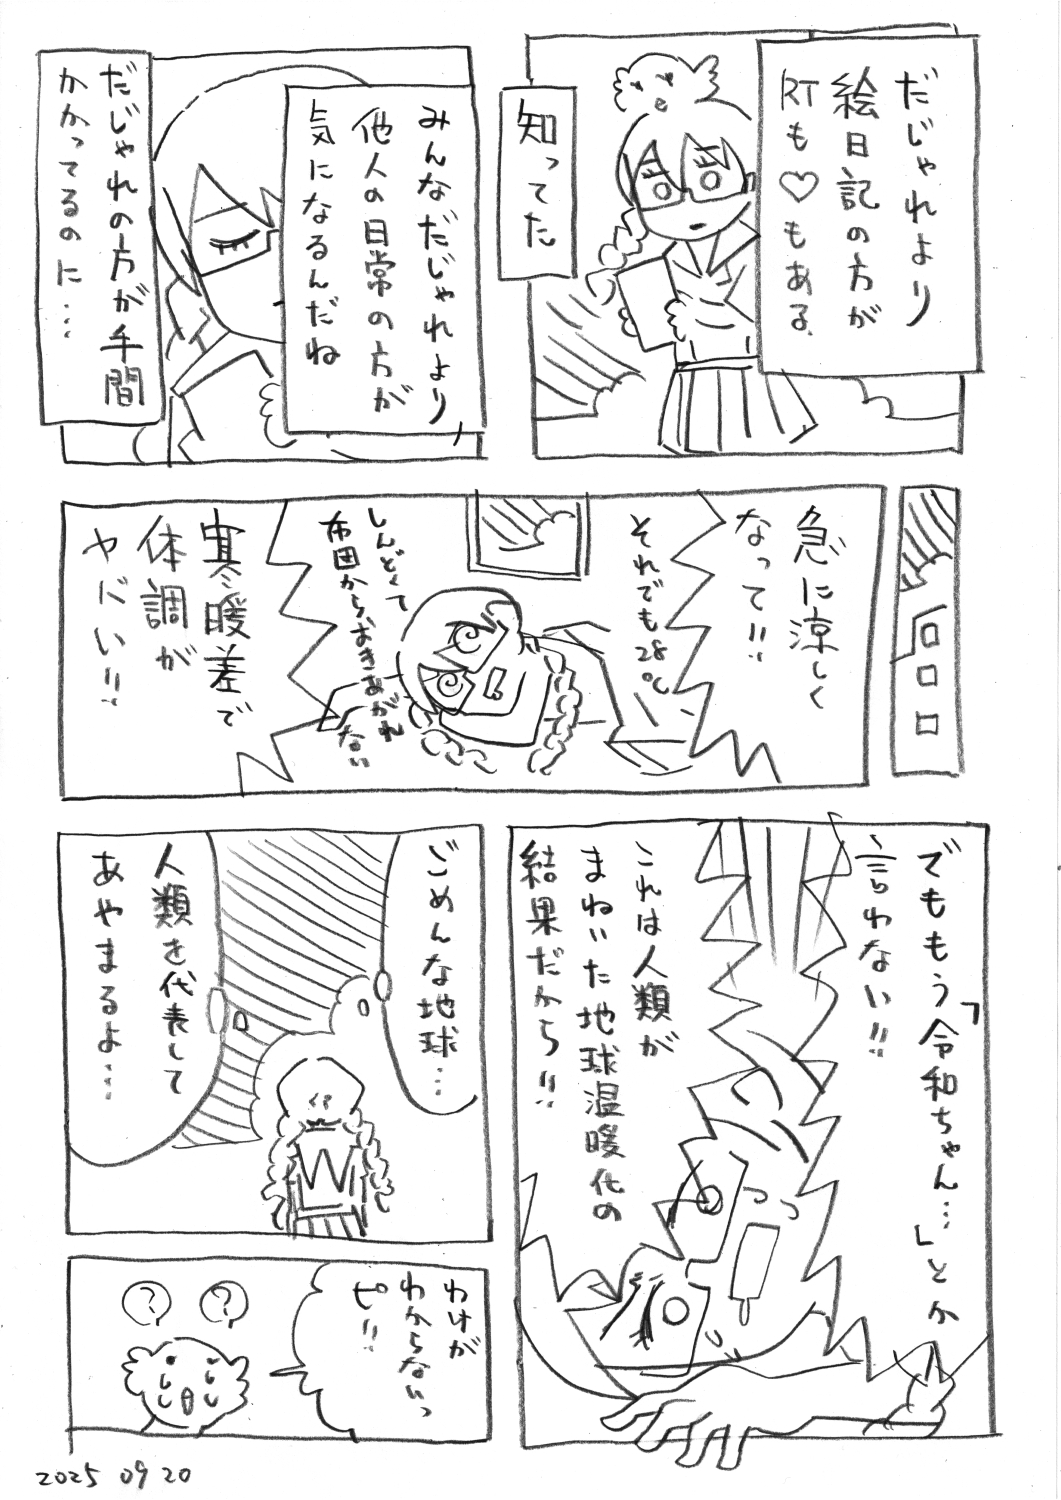 だじゃれより
絵日記の方が
RTも♡もある
知ってた
みんなだじゃれより
他人の日常の方が
気になるんだね
だじゃれの方が手間
かかってるのに…
急に涼しく
なって!!
それでも28℃
しんどくて
布団からおきあがれ
ない
寒暖差で
体調が
ヤバい!!
でももう「令和ちゃん…」とか
言わない!!
これは人類が
まねいた地球温暖化の
結果だから!!
ごめんな地球…
人類を代表して
あやまるよ…
W
わけが
わからないっ
ピ!!
?
?
2025 09 20